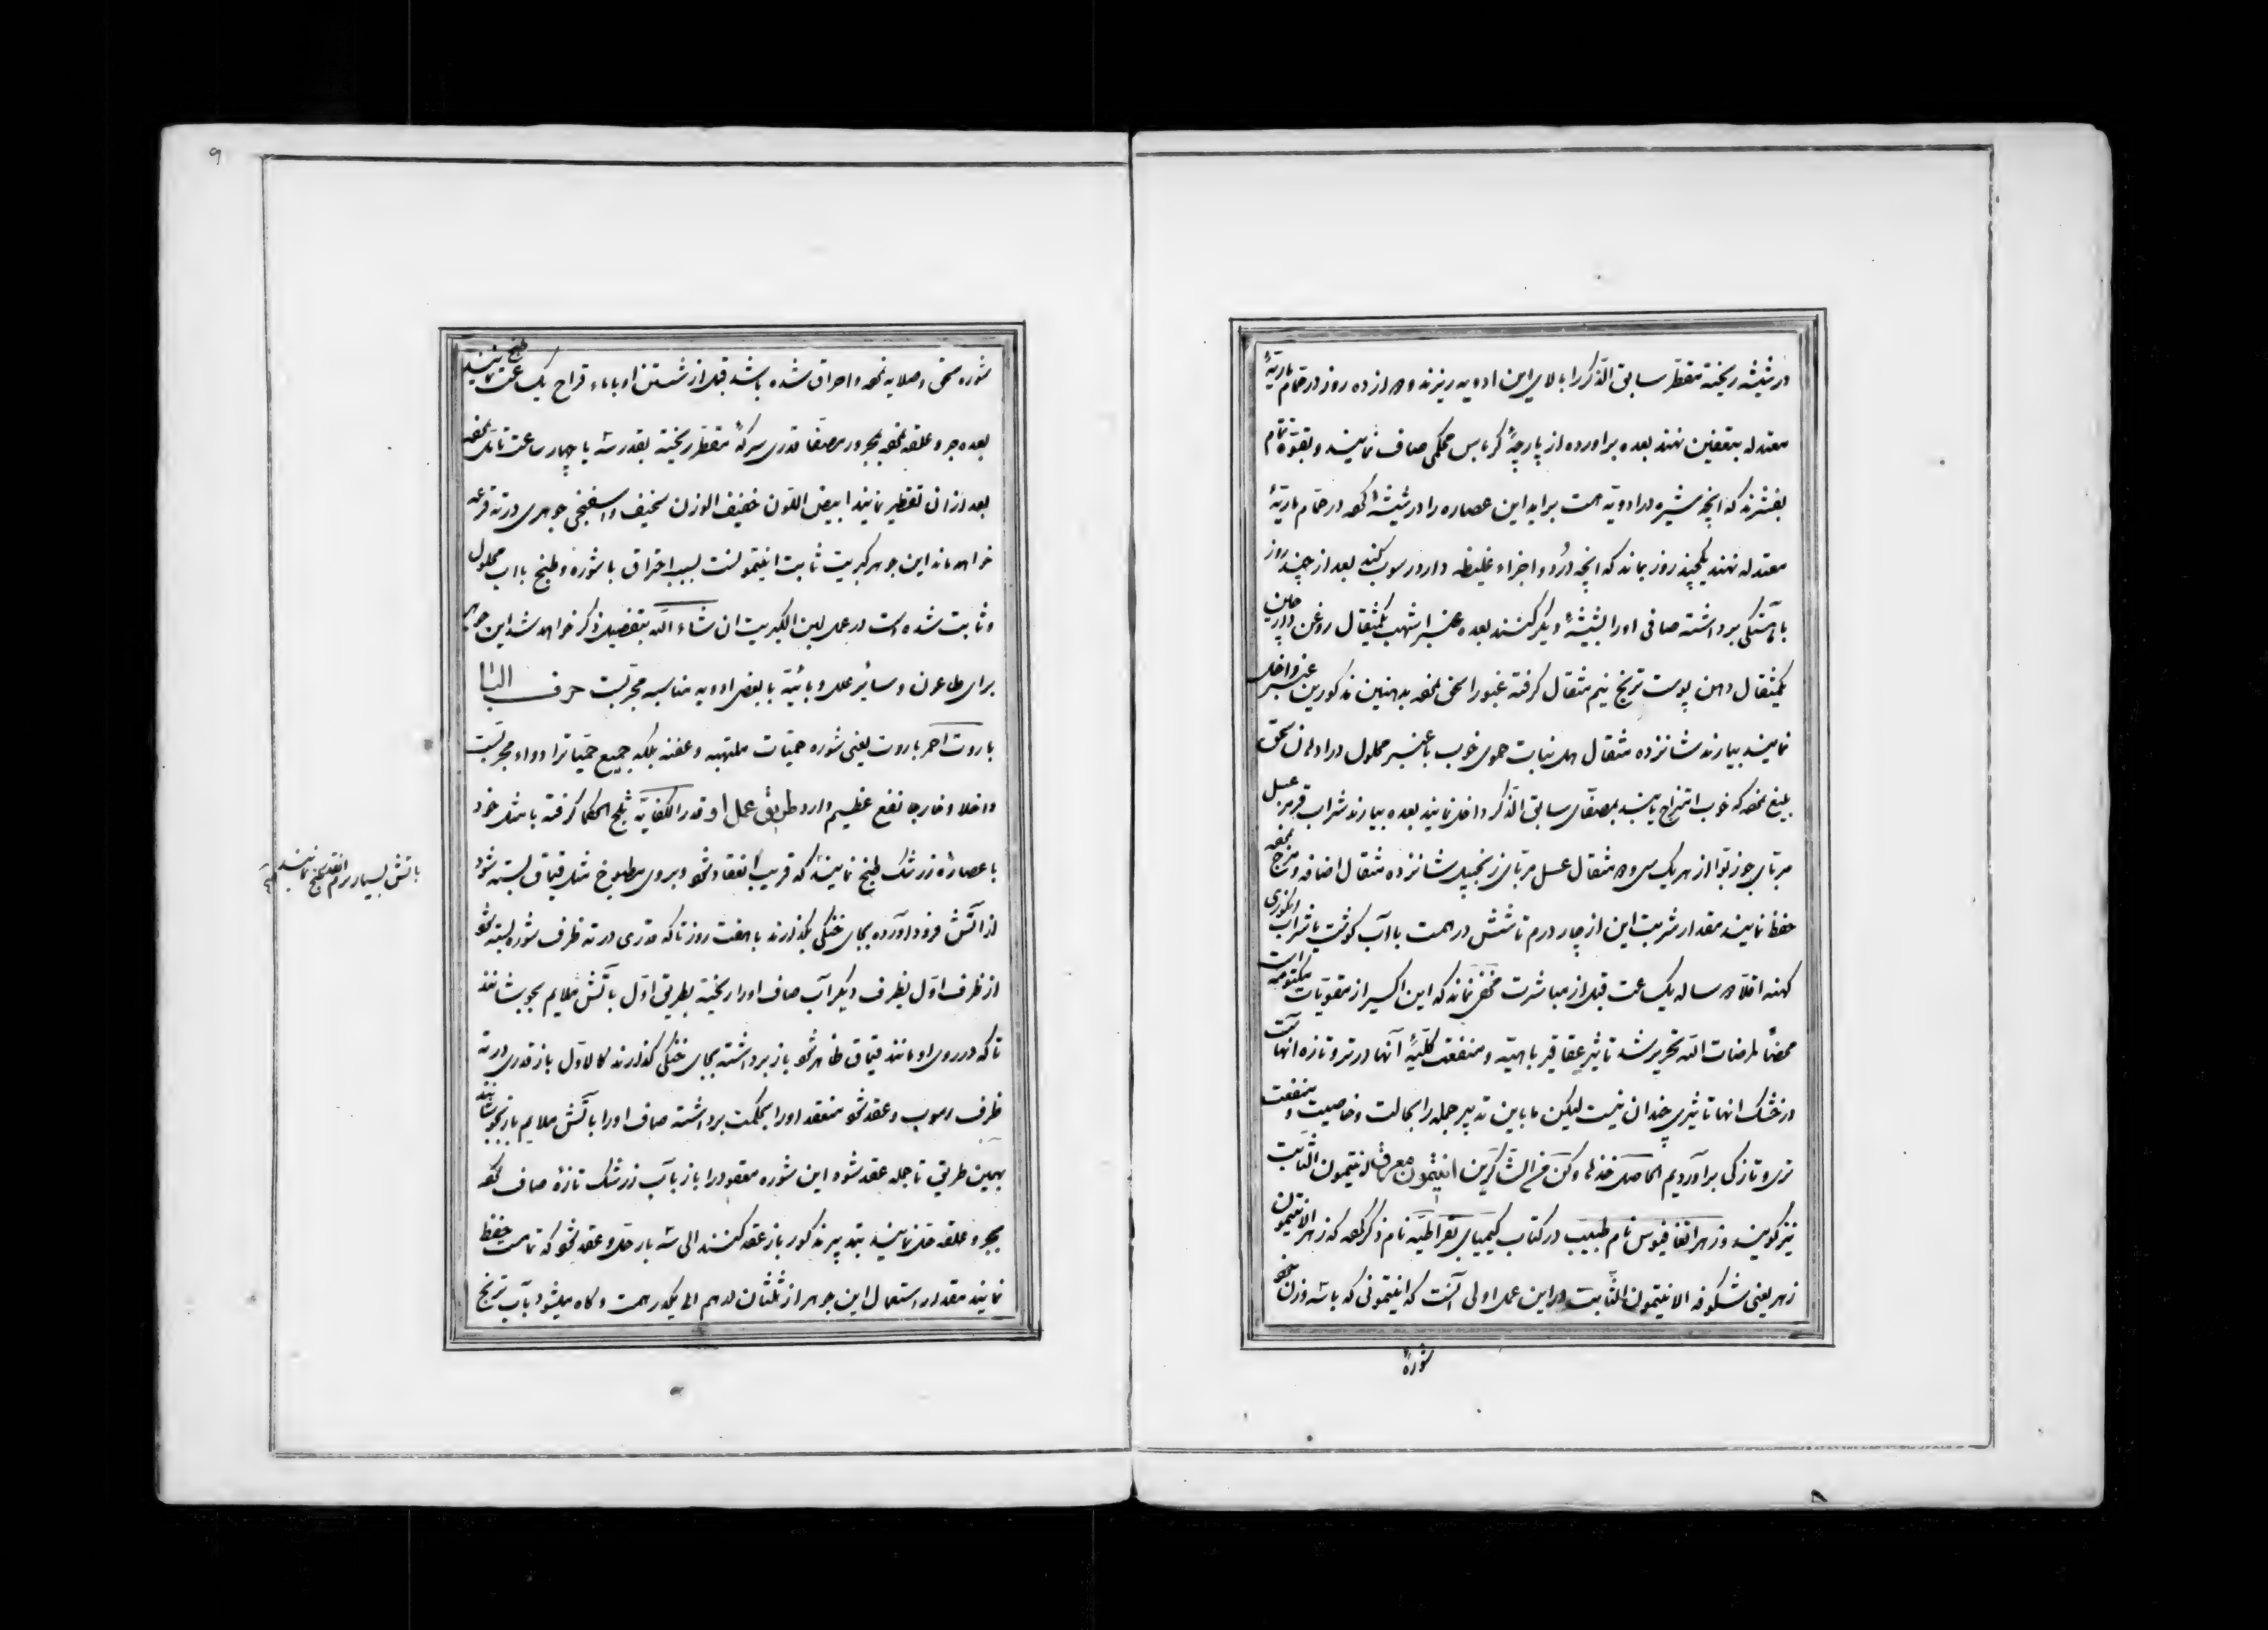 در شیشه ریخته مقطر سابق الذکر را بالای این ادویه ریزند و ۱۵ از ده روز در حمام ماریۀ
معتدله بتعفین نهند بعده براورده از پارچۀ کرباس محکمی صاف نمایند و بقوة تمام
بفشرند که آنچه شیره در ادویه است براید این عصاره را در شیشۀ کرده در حمام ماریۀ
معتدله نهند یکچند روز بماند که آنچه دُرد و اجزاء غلیظه دارد رسوب کند بعد از چند روز
باهستکی برداشته صافی اورا بشیشۀ دیکر کنند بعده عنبر اشهب یکمثقال روغن دارچین
یکمثقال دهن پوست ترنج نیم مثقال کرفته عنبر را سحق نموده بدهنین مذکورین عنبر داخل
نمایند بیارند شانزده مثقال نبات حموی خوب با عنبر محلول در ادهان سحق
بلیغ نموده که خوب امتزاج یابند بمصفای سابق الذکر داخل نمایند بعده بیارند شراب قرمز عسل
مربای جوز بوا از هر یک سی و مثقال عسل مربای زنجبیل شانزده مثقال اضافه و مزج نموده
حفظ نمایند مقدار شربت این از چار درم تا شش درمست با آب کوشت یا شراب انکوری
کهنه اقلا ساله یک ساعت قبل از مباشرت مخفی نماند که این اکسیر از مقویات مکتومه است
محضا لمرضات الله تحریر شد تاثیر عقاقیر باهیه و منفعت کلیۀ آنها در تر و تازه انها است
در خشک انها تاثیری چندان نیست لیکن ما باین تدبیر جمله را بحالت و خاصیت و منفعت
تری و تازکی براوردیم الحاصل خذ لها وکن من الشاکرین انتیمون معرق انتیمون الثابت
نیز کویند و زهر اتفافیوس نام طبیب در کتاب کیمیای بقراطیه نام ذکر کرده که زهر الانتیمون
زهر یعنی شکوفه الانتیمون الثابت در این عمل اولی آنست که انتیمونی که با سه وزن خود
شورۀ
۹
شوره سحق و صلایه نموده و احراق شده باشد قبل از شستن او باماء قراح یک ساعت طبخ نمایند
بعده جر و علقه نموده بمجرور مصفا قدری سرکۀ مقطر ریخته بقدر سه یا چهار ساعت تا تک نموده
بعد ازان تقطیر نمایند ابیض اللون خفیف الوزن سخیف واسفنجی جوهری در ته قرعه
خواهد ماند این جوهر کبریت ثابت انتیمونست بسبب احتراق با شوره و طبخ با آب محلول
و ثابت شده است در عمل لبن الکبریت ان شاء الله بتفصیل ذکر خواهد شد این جوهر
برای طاعون و سائر علل وبائیه با بعض ادویه مناسبه مجربست حرف الباء
باروت احمر باروت یعنی شوره حمیات ملتهبه و عفنه بلکه جمیع حمیاترا دواء مجربست
داخلا و خارجا نفع عظیم دارد طریق عمل او قدر الکفایه ثلج الحکما کرفته با مثل خود
با عصارۀ زرشک طبخ نمایند که قریب انعقاد شود و بروی مطبوخ مثل قیماق بسته شود
از آتش فرود آورده بجای خنکی بکذارند با هفت روز تا که قدری در ته ظرف شوره بسته شود
از ظرف اول بظرف دیکر آب صاف اورا ریخته بطریق اول باتش ملایم بجوشانند
تا که در روی او مانند قیماق ظاهر شود باز برداشته بجای خنکی کذارند کالاول باز قدری در ته
ظرف رسوب و عقد شود منعقد اورا بحکمت برداشته صاف اورا باتش ملایم باز بجوشانند
بهمین طریق تا جمله عقد شود این شوره معقود را باز بآب زرشک تازۀ صاف کرده
بجر و علقه حل نمایند بتدبیر مذکور باز عقد کنند الی سه بار حل و عقد شود که تمامست حفظ
نمایند مقدار استعمال این جوهر از ثلثان درهم الی یکدرهمست و کاه میشود بآب ترنج
باتش بسیار نرم انقدر طبخ نمایند